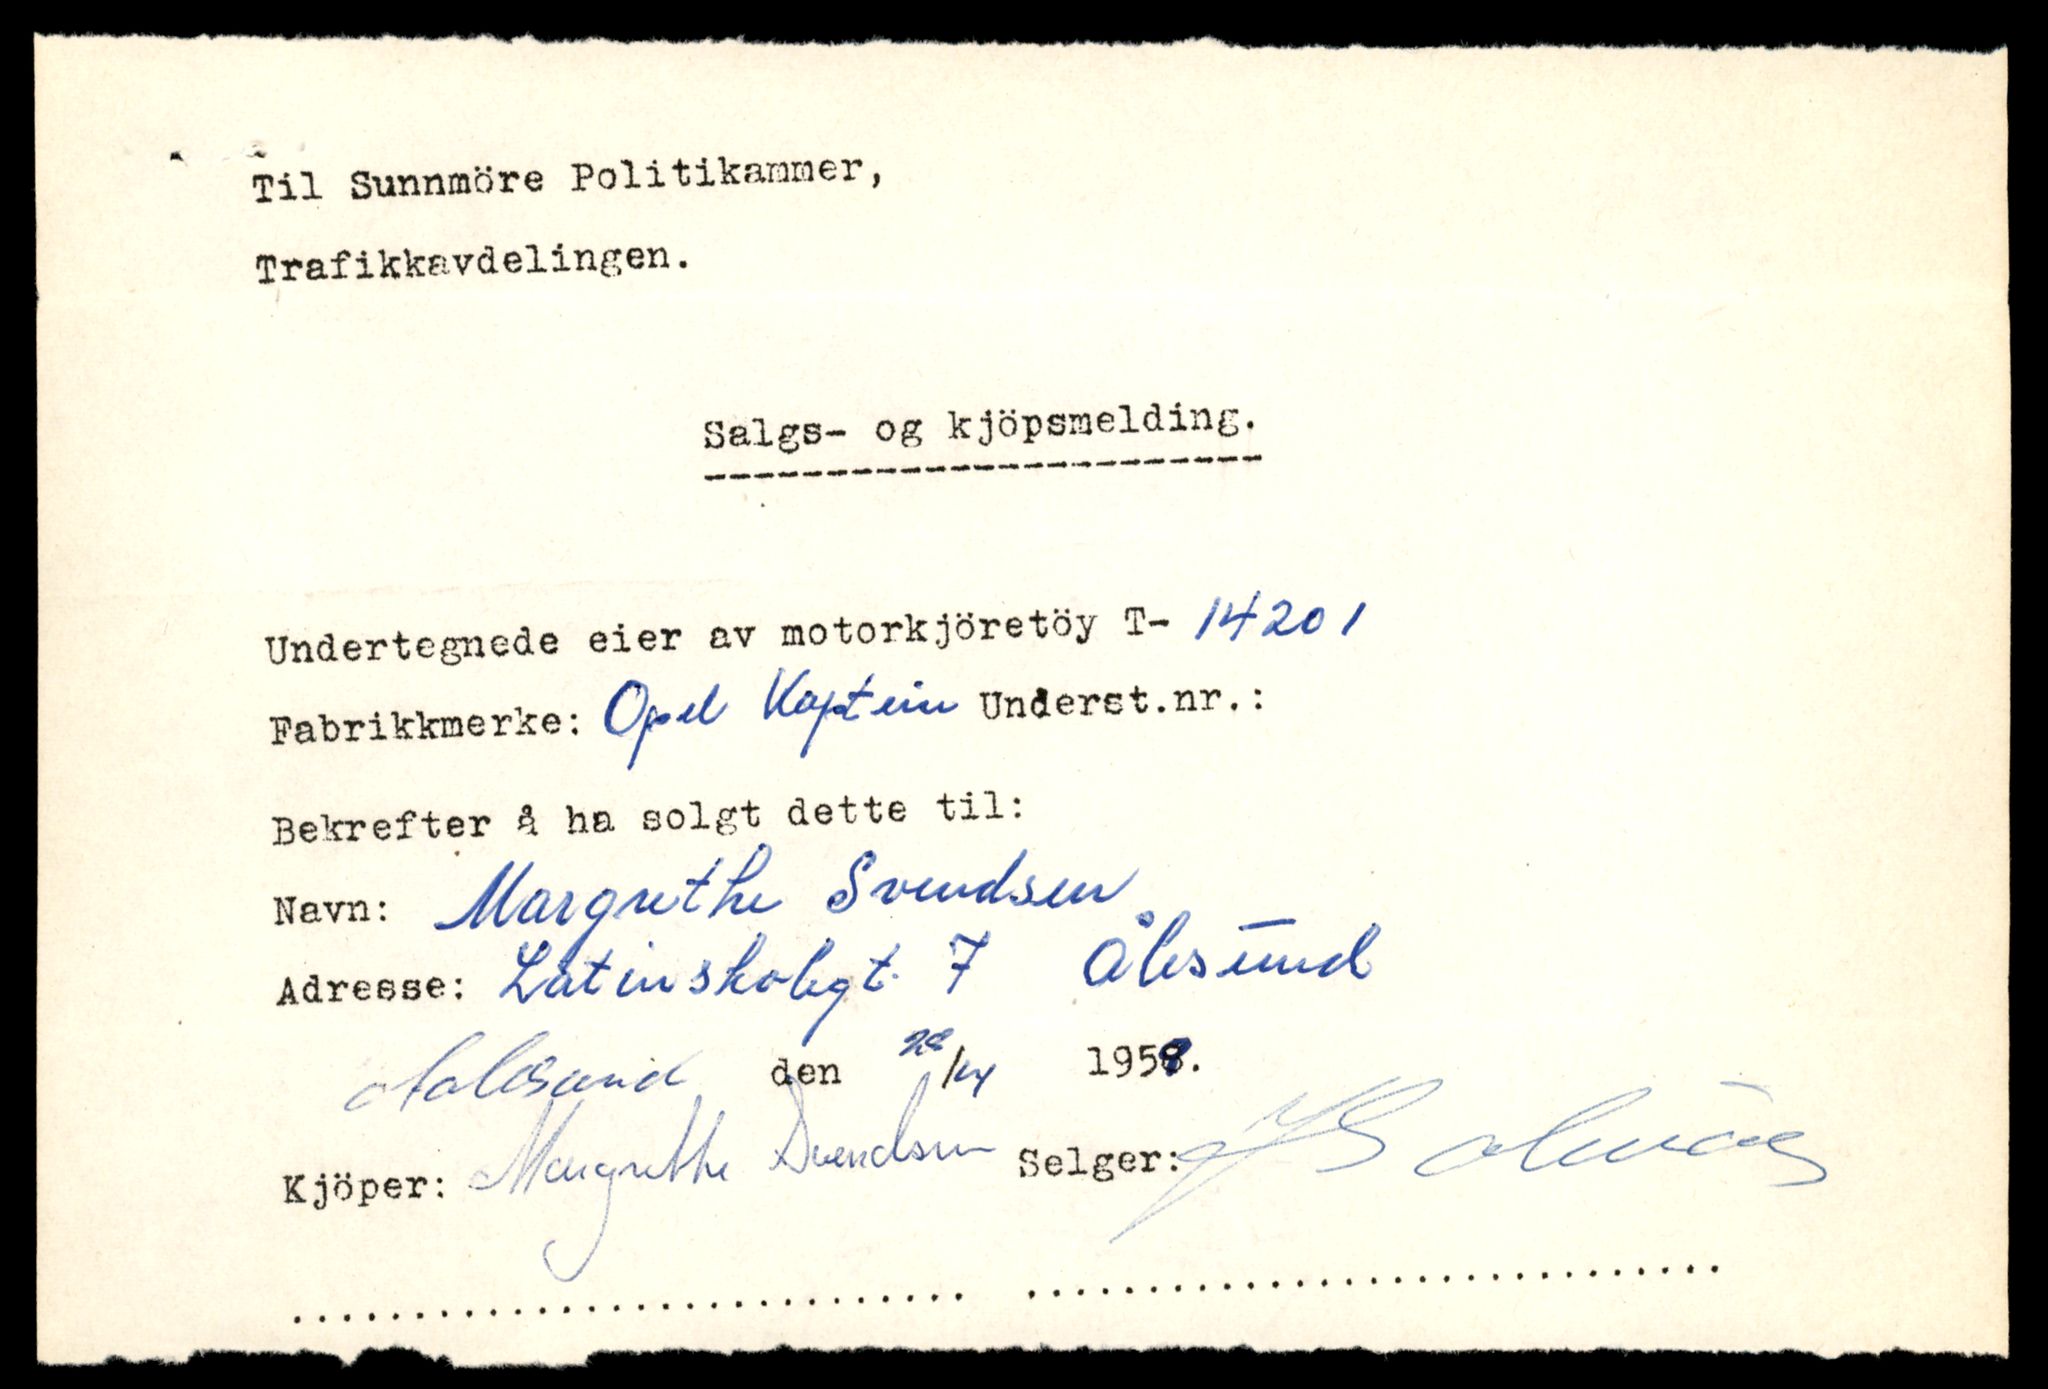 Til Sunnmöre Politikammer,
Trafikkavdelingen.
Salgs- og kjöpsmelding.
Undertegnede eier av motorkjöretöy T- 14201
Fabrikkmerke: Opel Kaptein Underst.nr.:
Bekrefter å ha solgt dette til:
Navn: Margrethe Svendsen
Adresse: Latinskolegt. 7 Ålesund
Aalesund den 195
Kjöper: Margrethe Svendsen Selger: